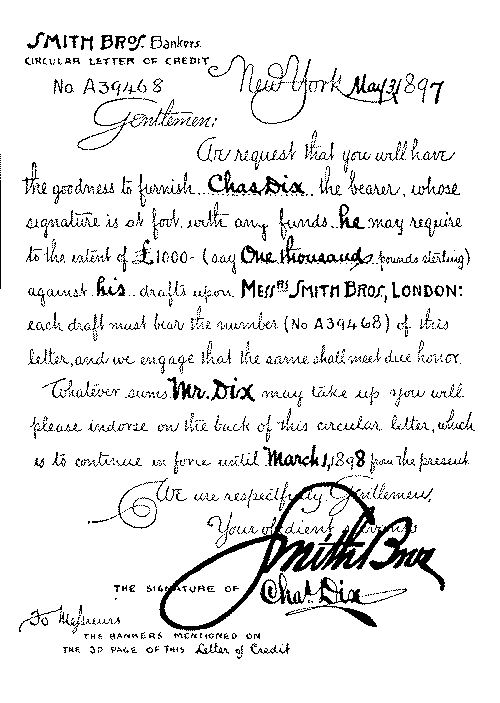 SMITH BROS. Bankers.
CIRCULAR LETTER OF CREDIT
No A39468
New York May 31 1897
Gentlemen:
We request that you will have
the goodness to furnish Chas. Dix the bearer, whose
signature is at foot, with any funds he may require
to the extent of £1000- (say One thousand pounds sterling)
against his drafts upon MESSRS SMITH BROS., LONDON:
each draft must bear the number (No A39468) of this
letter, and we engage that the same shall meet due honor.
Whatever sums Mr. Dix may take up you will
please indorse on the back of this circular letter, which
is to continue in force until March 1, 1898 from the present
We are respectfully, Gentlemen,
Your obedient servants
Smith Bros
THE SIGNATURE OF Chas. Dix
To Messieurs
THE BANKERS MENTIONED ON
THE 3D PAGE OF THIS Letter of Credit